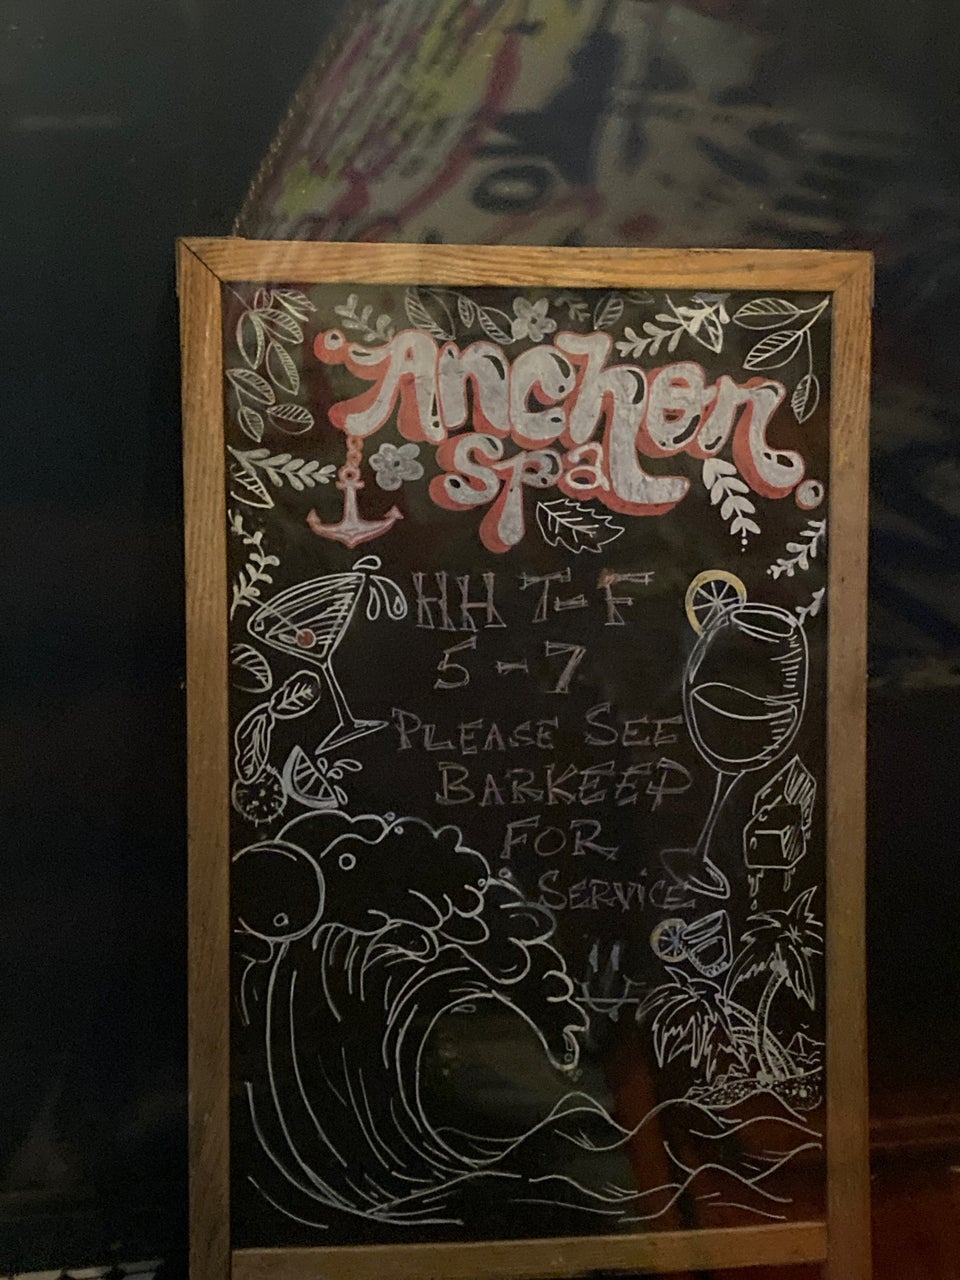 Anchor
Spa
HH T-F
5-7
PLEASE SEE
BARKEEP
FOR
SERVICE